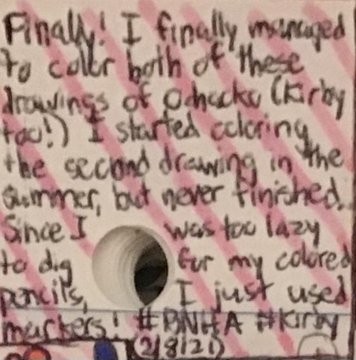 Finally! I finally managed
to color both of these
drawings of Ochacko (Kirby
too!) I started coloring
the second drawing in the
summer, but never finished.
Since I was too lazy
to dig for my colored
pencils, I just used
markers! #BNHA #Kirby
12/8/21)